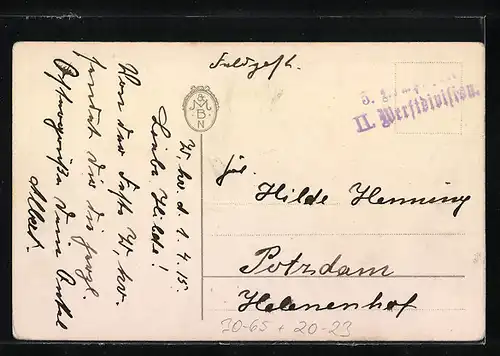 Feldpost.
3. Komp
II. Werftdivision.
M
B
N
W. hv. d. 1. 4. 15.
Liebe Hilde!
Von der Feste W. hv.
sendet Dir die herzl.
Ostergrüße Dein Onkel
Albert.
Frl.
Hilde Henning
Potsdam
Helenenhof
70-65 + 20-23